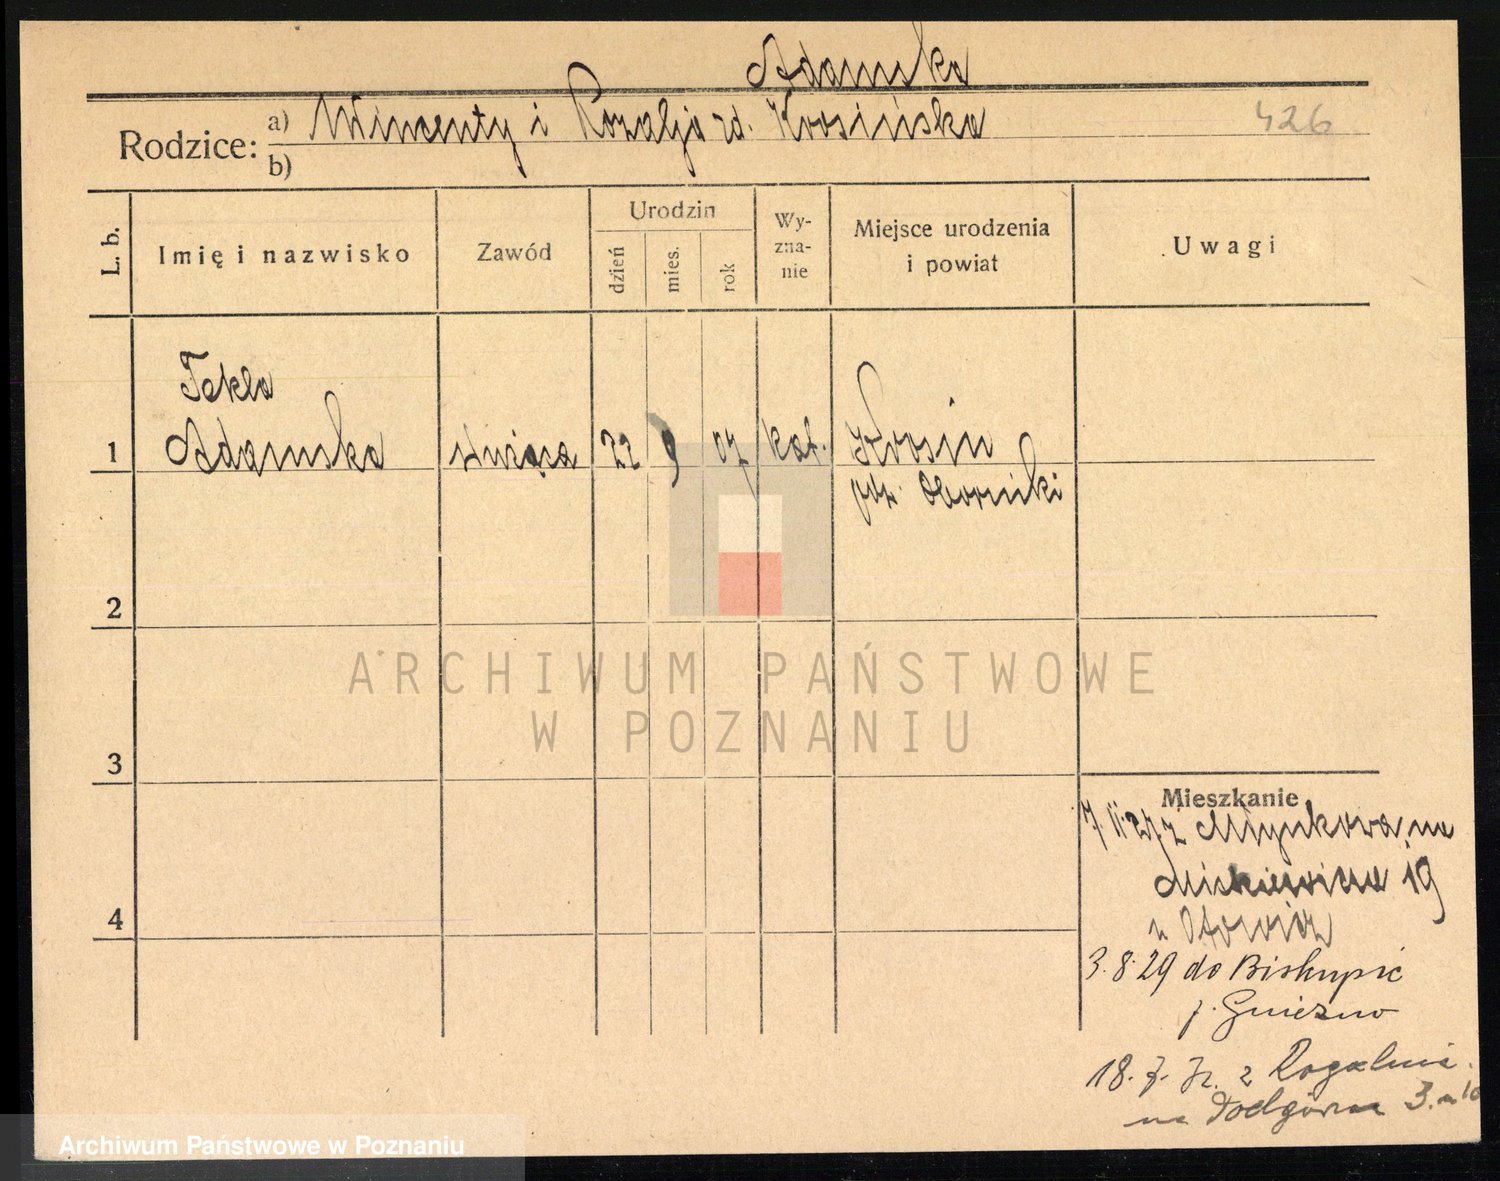 Adamska
Rodzice: a) Wincenty i Rozalja zd. Krosińska
b)
426
L. b.
Imię i nazwisko
Zawód
Urodzin
dzień
mies.
rok
Wy-
zna-
nie
Miejsce urodzenia
i powiat
Uwagi
Tekla
1 Adamska służąca 22 9 07 kat. Krosin
pow. Oborniki
2
3
4
ARCHIWUM PAŃSTWOWE
W POZNANIU
Mieszkanie
7. 11. 27 z Młynkowa na
19
u
3. 8. 29 do Biskupic
p. Gniezno
18. 7. z Rogalina
na Podgórna 3. m 10
Archiwum Państwowe w Poznaniu